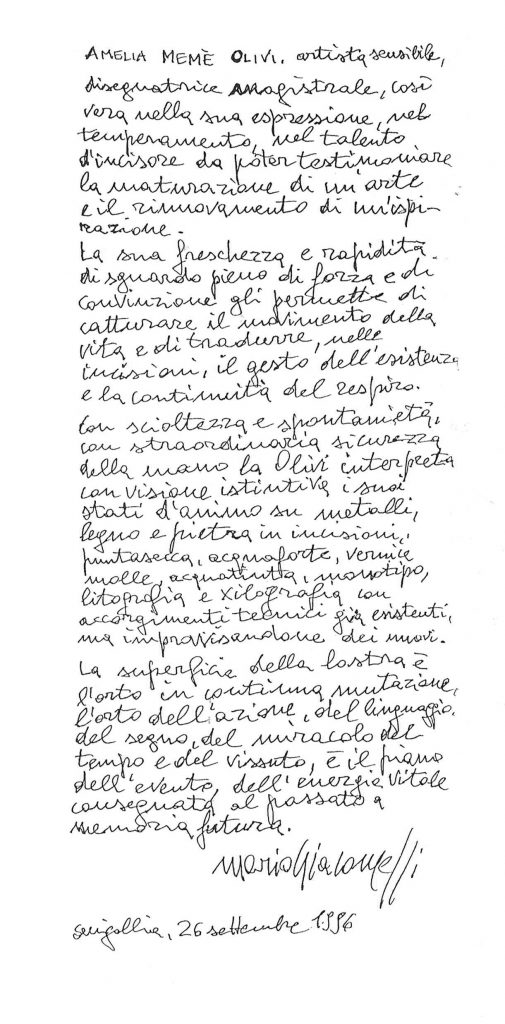 AMELIA MEMÈ OLIVI. artista sensibile,
disegnatrice magistrale, così
vera nella sua espressione, nel
temperamento, nel talento
d'incisore da poter testimoniare
la maturazione di un'arte
e il rinnovamento di un'ispi-
razione.
La sua freschezza e rapidità
di sguardo pieno di forza e di
convinzione gli permette di
catturare il movimento della
vita e di tradurre, nelle
incisioni, il gesto dell'esistenza
e la continuità del respiro.
Con scioltezza e spontanietà,
con straordinaria sicurezza
della mano la Olivi interpreta
con visione istintiva i suoi
stati d'animo su metalli,
legno e pietra in incisioni,
puntasecca, acquaforte, vernice
molle, acquatinta, monotipo,
litografia e xilografia con
accorgimenti tecnici già esistenti,
ma improvvisandone dei nuovi.
La superficie della lastra è
l'orto in continua mutazione,
l'orto dell'azione, del linguaggio,
del segno, del miracolo del
tempo e del vissuto, è il piano
dell'evento, dell'energia vitale
consegnata al passato a
memoria futura.
Mario Giacomelli
Senigallia, 26 settembre 1996